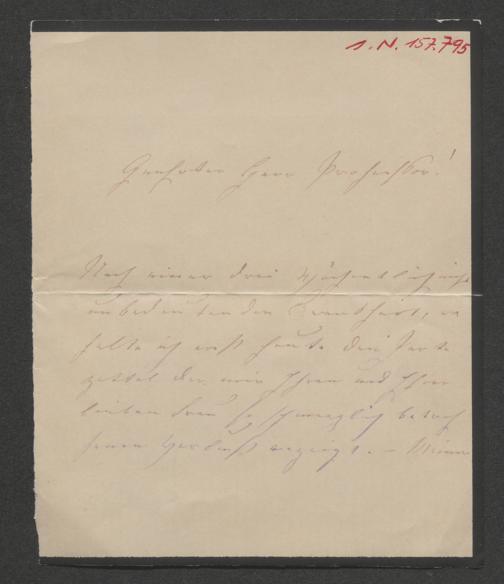 I. N. 157.795
Geehrter Herr Professor!
Nach einer drei wöchentlich nicht
unbedeutenden Krankheit, er
halte ich erst heute den Parte
zettel der mir Ihren und Ihrer
lieben Frau so schmerzlich betrof
fenen Verlust anzeigt. – Meine